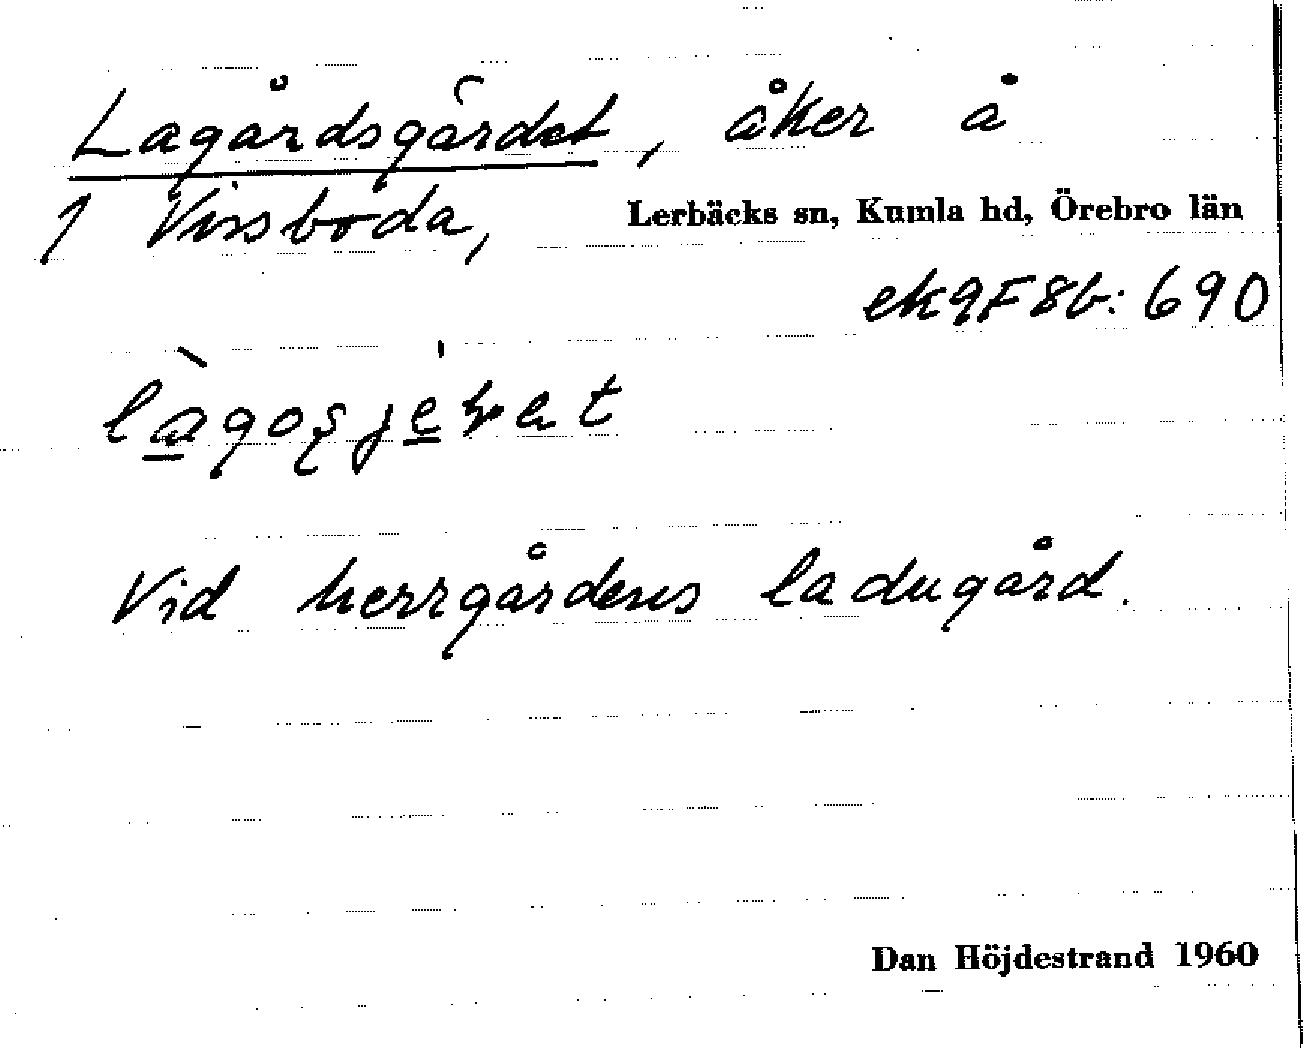 Lagårdsgärdet, åker å
1 Vissboda, Lerbäcks sn, Kumla hd, Örebro län
ek 9F8b: 690
Vid herrgårdens ladugård.
Dan Höjdestrand 1960